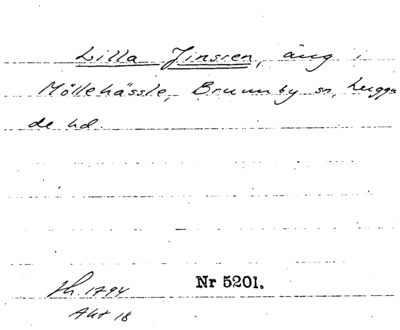 Lilla Jinsren, äng i
Möllehässle, Brunnby sn, Luggu
de hd.
Nr 5201.
sh. 1794
Akt 18